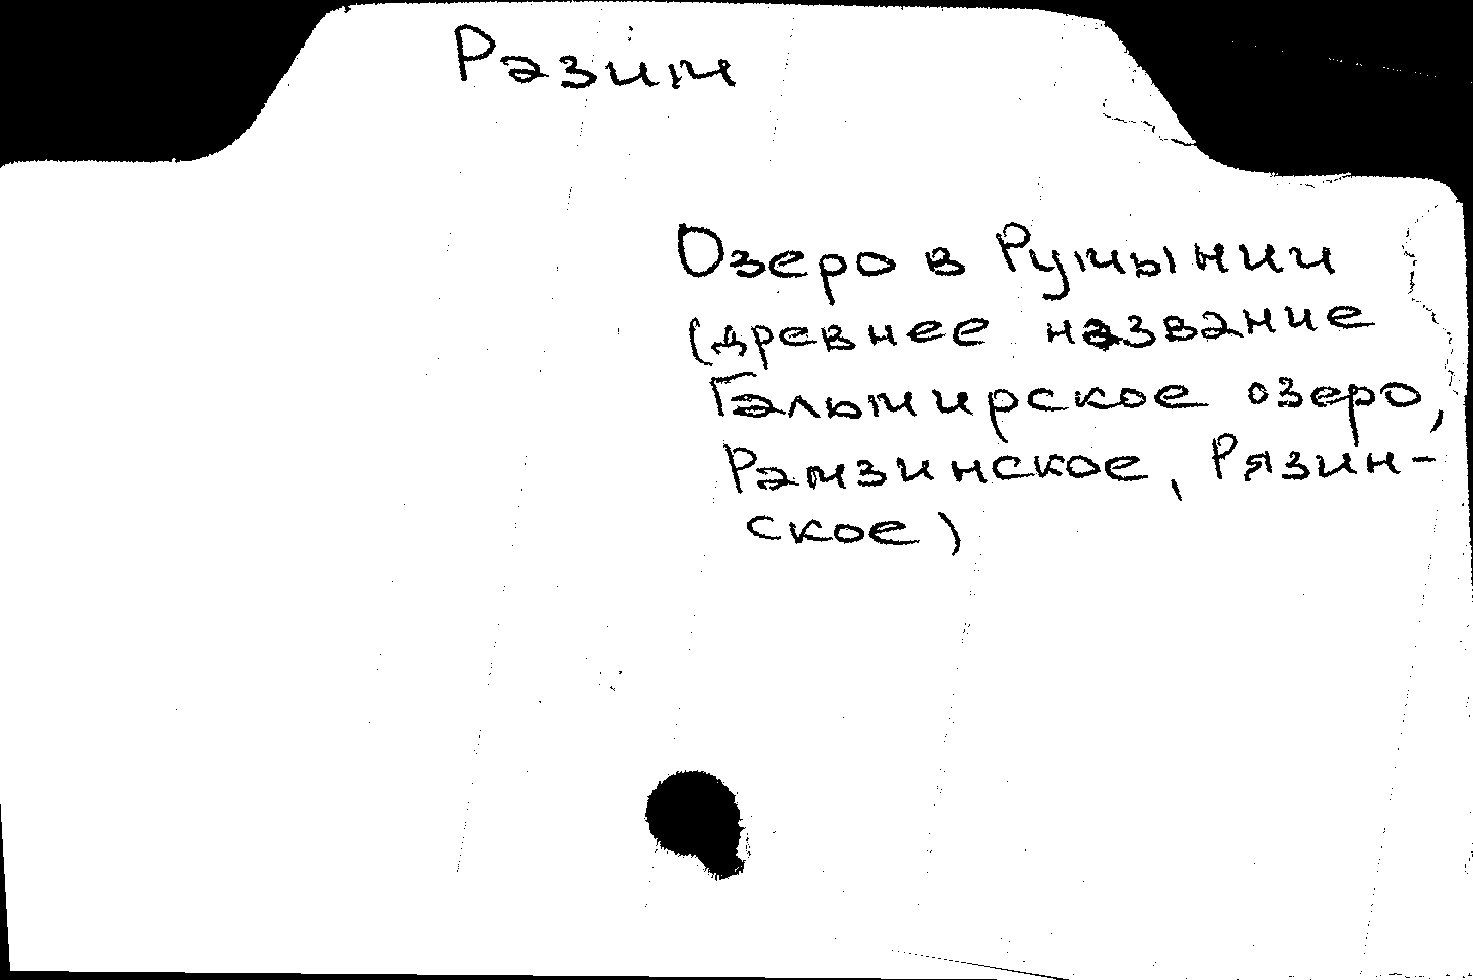 Разим
Озеро в Румынии
(древнее название
Гальмирское озеро,
Рамзинское, Рязин-
ское)